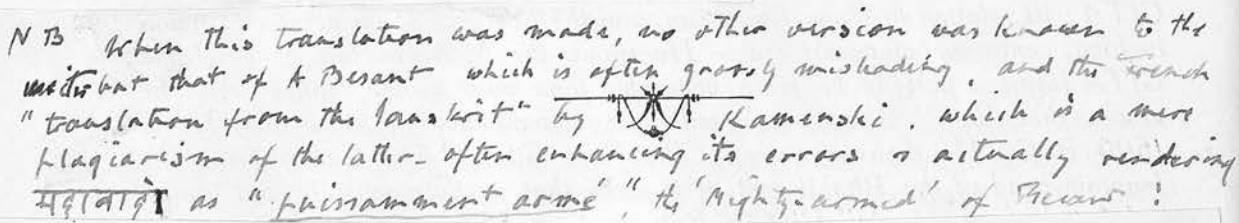 NB When this translation was made, no other version was known to the
writer but that of A Besant which is often grossly misleading, and the French
"translation from the Sanskrit" by Kamenski. which is a mere
plagiarism of the latter - often enhancing its errors & actually rendering
महाबाहो as "puissamment armé", the 'Mighty-armed' of !